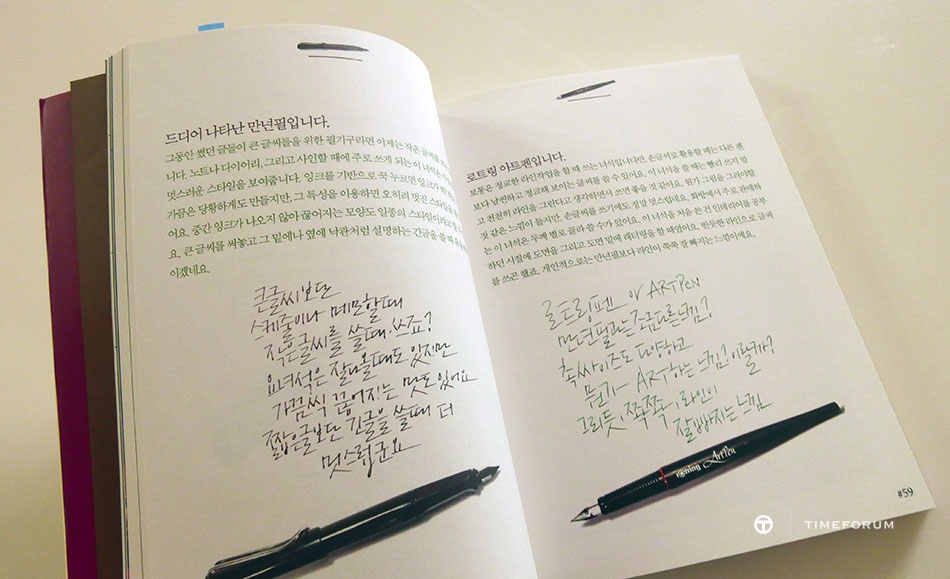 드디어 나타난 만년필입니다.
그동안 썼던 글들이 큰 글씨들을 위한 필기구라면 이제는 작은 글씨를
니다. 노트나 다이어리, 그리고 사인할 때에 주로 쓰게 되는 이 녀석은
멋스러운 스타일을 보여줍니다. 잉크를 기반으로 꾹 누르면 잉크가
가끔은 당황하게도 만들지만, 그 특성을 이용하면 오히려 멋진 스타일
어요. 중간 잉크가 나오지 않아 끊어지는 모양도 일종의 스타일이라고
요. 큰 글씨를 써놓고 그 밑에나 옆에 낙관처럼 설명하는 긴글을 쓸 때
이겠네요.
큰글씨보단
스케줄이나 메모할때
작은글씨를 쓸때, 쓰죠?
요녀석은 잘나올때도 있지만
가끔씩 끊어지는 맛도있어요
짧은글보단 긴글을 쓸때 더
멋스럽군요
로트링 아트펜입니다.
보통은 정교한 라인작업을 할 때 쓰는 녀석입니다만, 손글씨로 활용할 때는 다른 펜
보다 날렵하고, 정교해 보이는 글씨를 쓸 수 있어요. 이 녀석을 쓸 때는 빨리 쓰지 말
고 천천히 라인을 그린다고 생각하면서 쓰면 좋을 것 같아요. 뭔가 그림을 그려야할
것 같은 느낌이 들지만, 손글씨를 쓰기에도 정말 멋스럽네요. 화방에서 주로 판매하
는 이 녀석은 두께 별로 골라 쓸 수가 있어요. 이 녀석을 처음 쓴 건 인테리어를 공부
하던 시절에 도면을 그리고 도면 밑에 레터링을 할 때였어요. 반듯한 라인으로 글씨
를 쓰곤 했죠. 개인적으로는 만년필보다 라인이 쭉쭉 잘 빠지는 느낌이에요.
로트링펜 아 ARTPEN
만년필과는 조금다른느낌?
촉싸이즈도 다양하고
뭔가 ART하는 느낌? 이랄까?
그리듯, 쭉쭉, 라인이
잘빠지는 느낌
rotring ArtPen
#59
TIMEFORUM